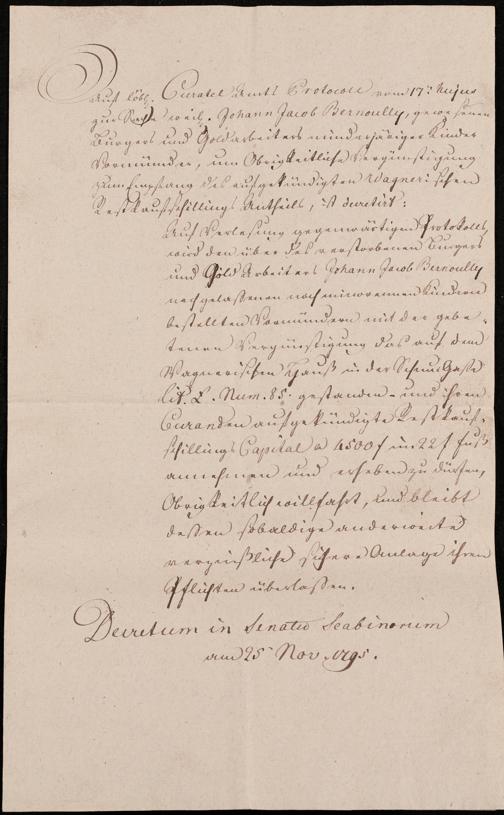 Auf löbl. Curatel Amts Protocoll vom 17ⁿ hujus
zur Sache weil. Johann Jacob Bernoully, gewesenen
Burgers und Goldarbeiters minderjäriger Kinder
Vormünder, um Obrigkeitliche Vergünstigung
zum Empfang des aufgekündigten Wagnerischen
Restkaufschillings Antheils, ist decretirt:
Auf Verlesung gegenwärtigen Protokolls,
wird den über des verstorbenen Burgers
und Gold Arbeiters Johann Jacob Bernoully
nachgelaßenen noch minorennen Kindern
bestellten Vormündern mit der gebe-
tenen Vergünstigung das auf dem
Wagnerischen Hauß in der Schnur Gaße
lit. L. Num. 85. gestanden- und ihren
Curanden aufgekündigte Restkauf-
schillings Capital a 4500 f im 22 f Fuß
annehmen und erheben zu dürfen,
Obrigkeitlich willfahrt, und bleibt
deßen sobaldige anderweite
vergnüßliche sichere Anlage ihren
Pflichten überlaßen.
Decretum in Senatu Scabinorum
am 25 Nov. 1795.